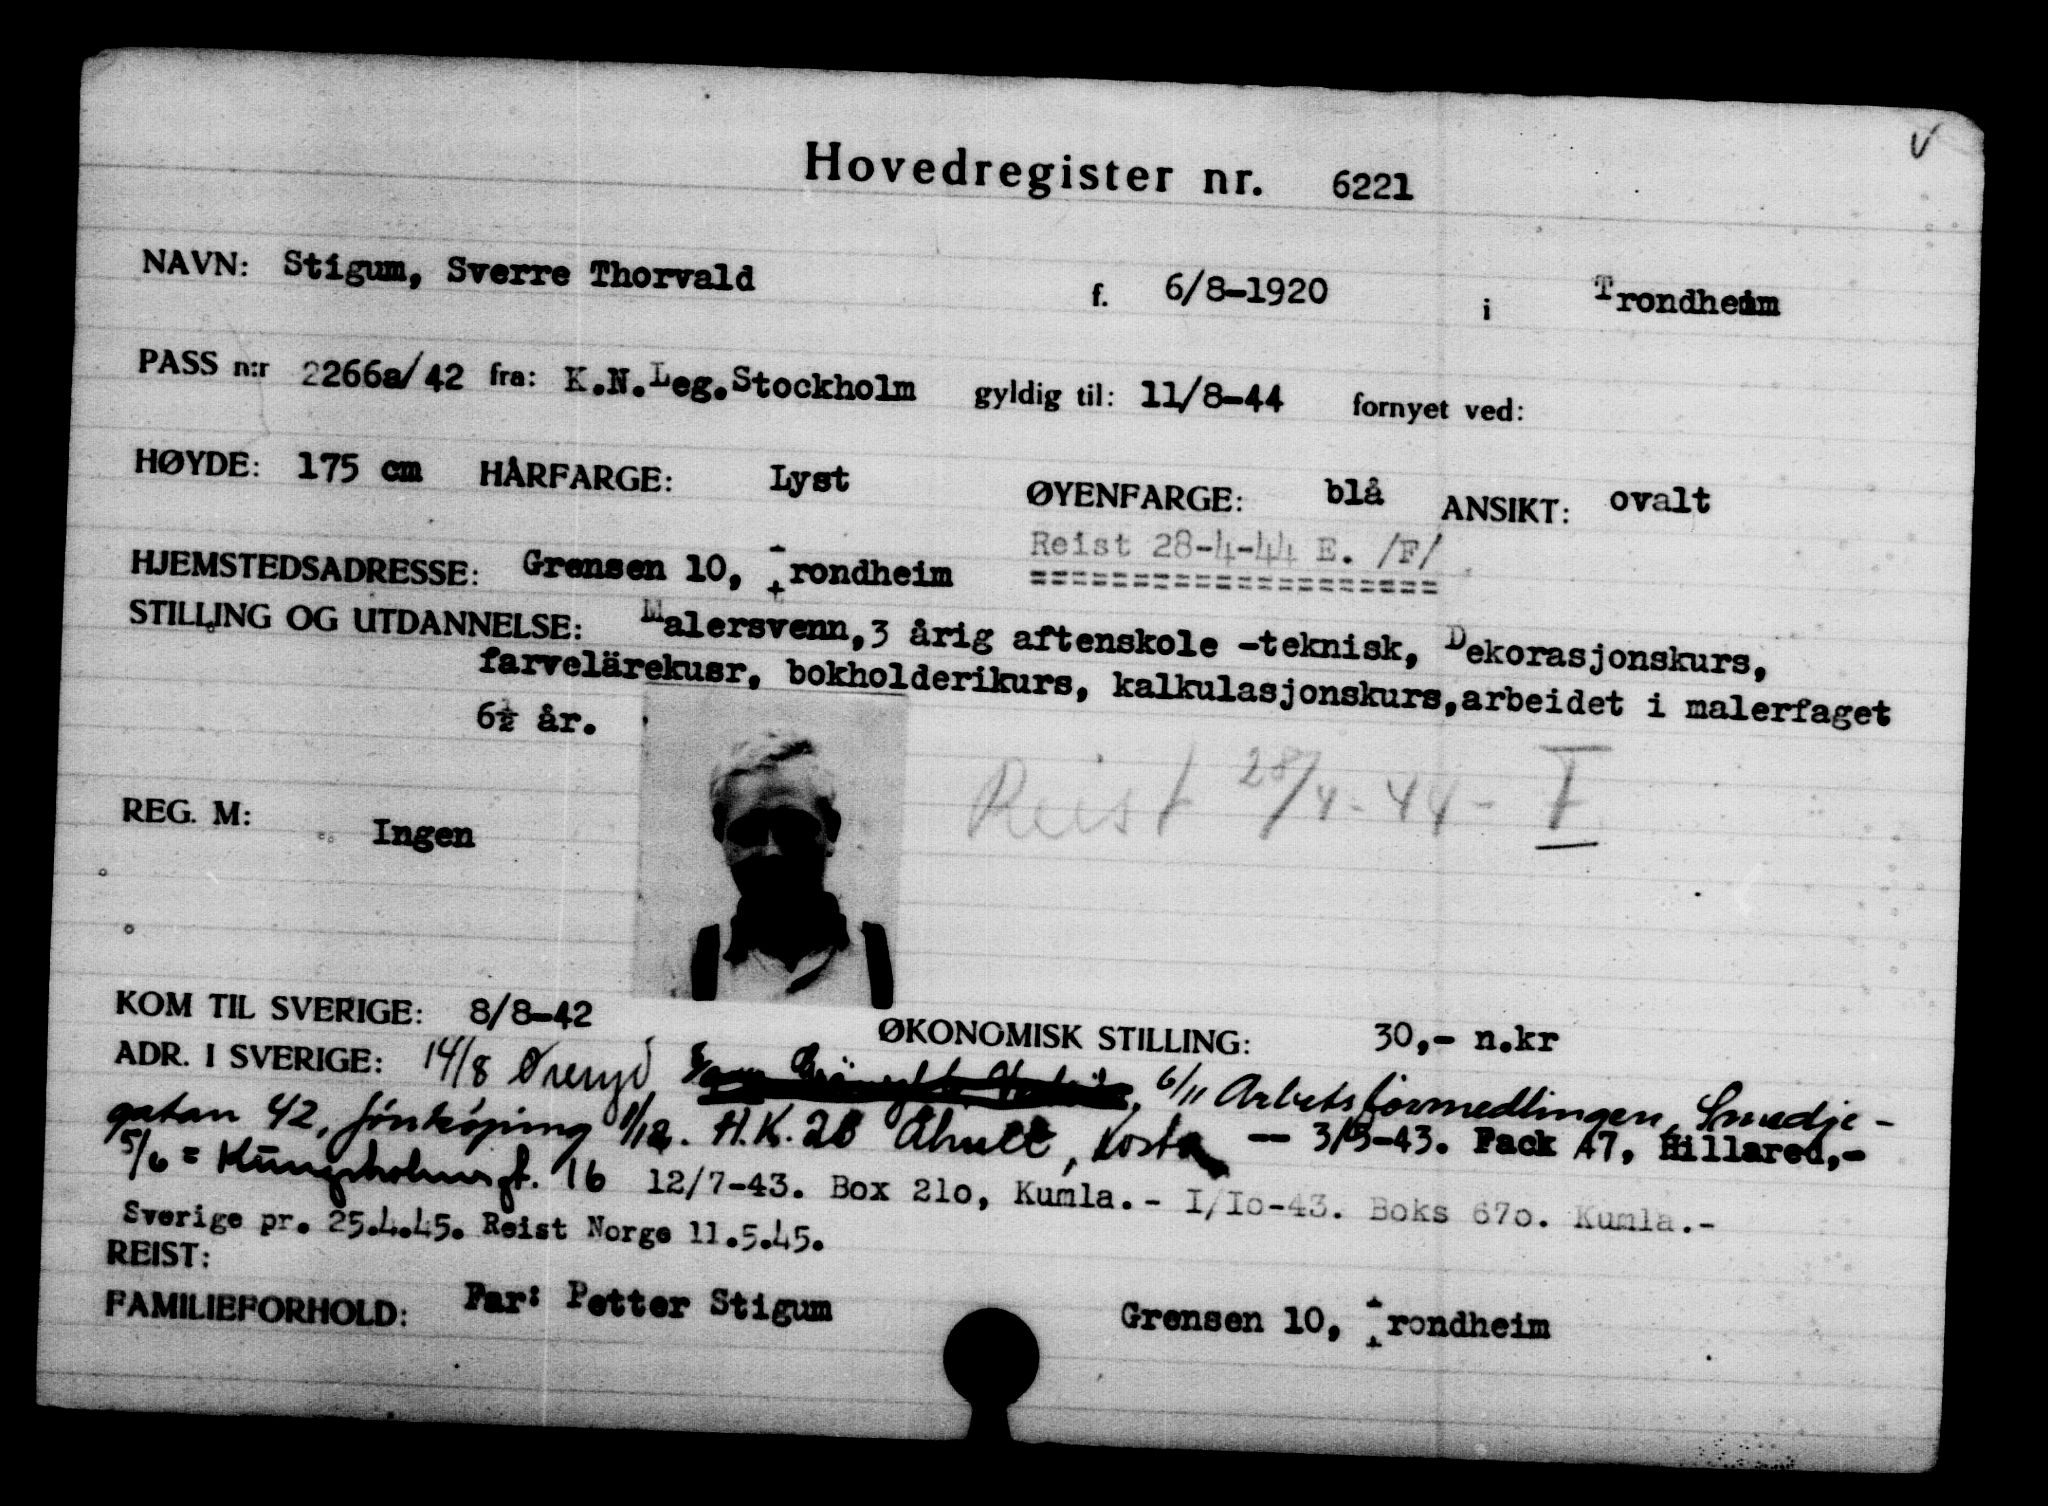 Hovedregister nr. 6221
NAVN: Stigum, Sverre Thorvald f. 6/8-1920 i Trondheim
PASS n:r 2266a/42 fra: K.N.Leg.Stockholm gyldig til: 11/8-44 fornyet ved:
HØYDE: 175 cm HÅRFARGE: Lyst ØYENFARGE: blå ANSIKT: ovalt
Reist 28-4-44 E. /F/
HJEMSTEDSADRESSE: Grensen 10, Trondheim
STILLING OG UTDANNELSE: Malersvenn,3 årig aftenskole -teknisk, Dekorasjonskurs,
farvelärekusr, bokholderikurs, kalkulasjonskurs,arbeidet i malerfaget
6½ år.
Reist 28/4-44- F
REG. M: Ingen
KOM TIL SVERIGE: 8/8-42 ØKONOMISK STILLING: 30,- n.kr
ADR. I SVERIGE: 14/8 Øreryd 6/11 Arbetsförmedlingen, Smedje-
gatan 42, Jönköping 1/12. H.K. 28 Åhult, Kosta -- 3/5-43. Fack 47, Hillared,-
5/6 = Kungsholmsgt. 16 12/7-43. Box 21o, Kumla.- I/Io-43. Boks 67o. Kumla.-
Sverige pr. 25.4.45. Reist Norge 11.5.45.
REIST:
FAMILIEFORHOLD: Far: Petter Stigum Grensen 10, Trondheim